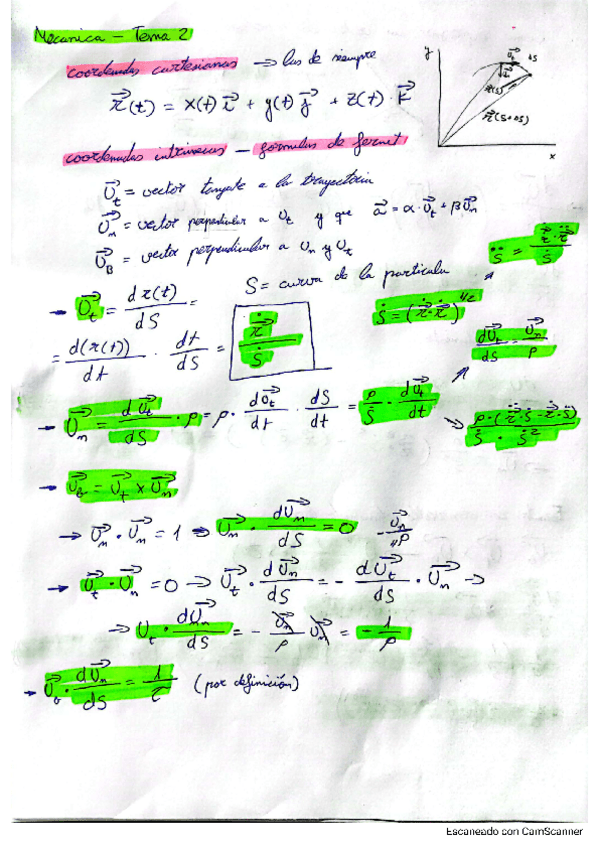 Mecanica - Tema 2
coordenadas cartesianas → las de siempre
r⃗(t) = x(t) i⃗ + y(t) j⃗ + z(t) · k⃗
y
ΔS
r⃗(s)
r⃗(s+ΔS)
x
coordenadas intrinsecas - formulas de fernet
U⃗t = vector tangente a la trayectoria
U⃗n = vector perpendicular a Ut y que a⃗ = α · U⃗t + β U⃗n
U⃗B = vector perpendicular a Un y Ut
S = curva de la particula
s̈ = ṙ⃗ · r̈⃗ / ṡ
→ U⃗t = d r(t) / dS =
ṡ = (ṙ⃗ · ṙ⃗)^1/2
= d(r(t)) / dt · dt / dS = ṙ⃗ / ṡ
dU⃗t / dS = U⃗n / ρ
→ U⃗n = dU⃗t / dS · ρ = ρ · dU⃗t / dt · dS / dt = ρ / ṡ · dU⃗t / dt
→ ρ · (r̈⃗ · ṡ - ṙ⃗ · s̈) / ṡ · ṡ²
→ U⃗B = U⃗t × U⃗n
→ U⃗n · U⃗n = 1 → U⃗n · dU⃗n / dS = 0
- U⃗n / ρ
→ U⃗t · U⃗n = 0 → U⃗t · dU⃗n / dS = - dU⃗t / dS · U⃗n →
→ Ut · dU⃗n / dS = - U⃗n / ρ U⃗n = - 1 / ρ
→ U⃗b · dU⃗n / dS = 1 / τ (por definición)
Escaneado con CamScanner